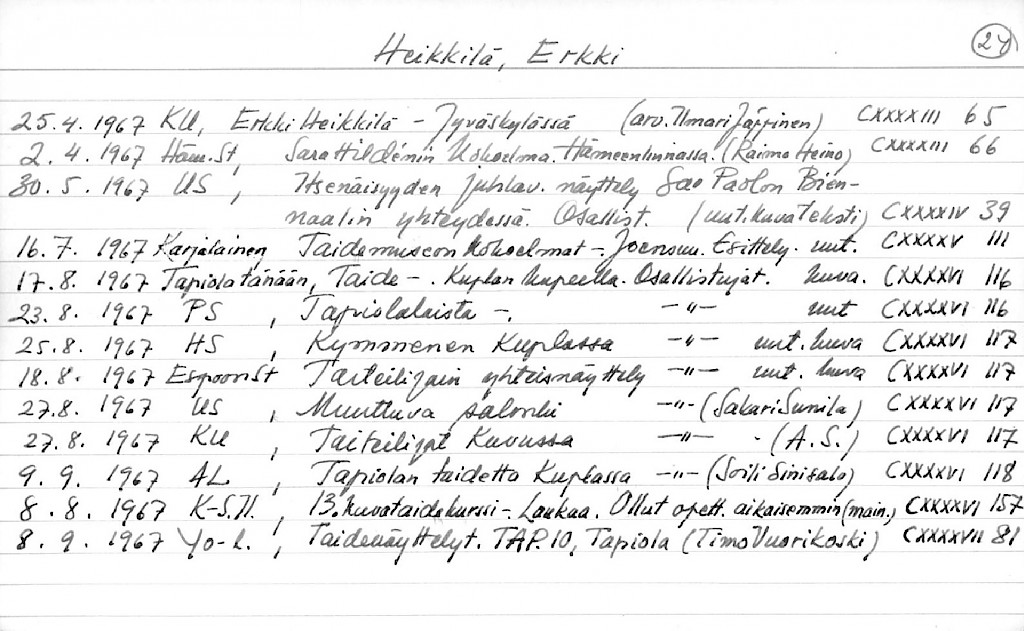 Heikkilä, Erkki 24
25.4. 1967 KU, Erkki Heikkilä - Jyväskylässä (arv. Ilmari Järvinen) CXXXXIII 65
2.4. 1967 Häm.St, Sara Hildénin Kokoelma. Hämeenlinnassa. (Raimo Heino) CXXXXIII 66
30.5. 1967 US, Itsenäisyyden juhlav. näyttely Sao Paolon Bien-
naalin yhteydessä. Osallist. (uut. kuva teksti) CXXXXIV 39
16.7. 1967 Karjalainen Taidemuseon kokoelmat - Joensuu. Esittely. uut. CXXXXV 111
17.8. 1967 Tapiola tänään, Taide - . Kuplan kupeella. Osallistujat. kuva. CXXXXVI 116
23.8. 1967 PS, Tapiolalaista -. -"- uut CXXXXVI 116
25.8. 1967 HS, Kymmenen Kuplassa -"- uut. kuva CXXXXVI 117
18.8. 1967 Espoon St Taiteilijain yhteisnäyttely -"- uut. kuva CXXXXVI 117
27.8. 1967 US, Muuttuva salonki -"- (Sakari Sunila) CXXXXVI 117
27.8. 1967 KU, Taiteilijat Kuvussa -"- . (A.S.) CXXXXVI 117
9.9. 1967 AL, Tapiolan taidetta Kuplassa -"- (Soili Sinisalo) CXXXXVI 118
8.8. 1967 K-S.U., 13. kuvataidekurssi - Laukaa. Ollut opett. aikaisemmin (main.) CXXXXVI 157
8.9. 1967 Yo-l., Taidenäyttelyt. TAP. 10, Tapiola (Timo Vuorikoski) CXXXXVII 81